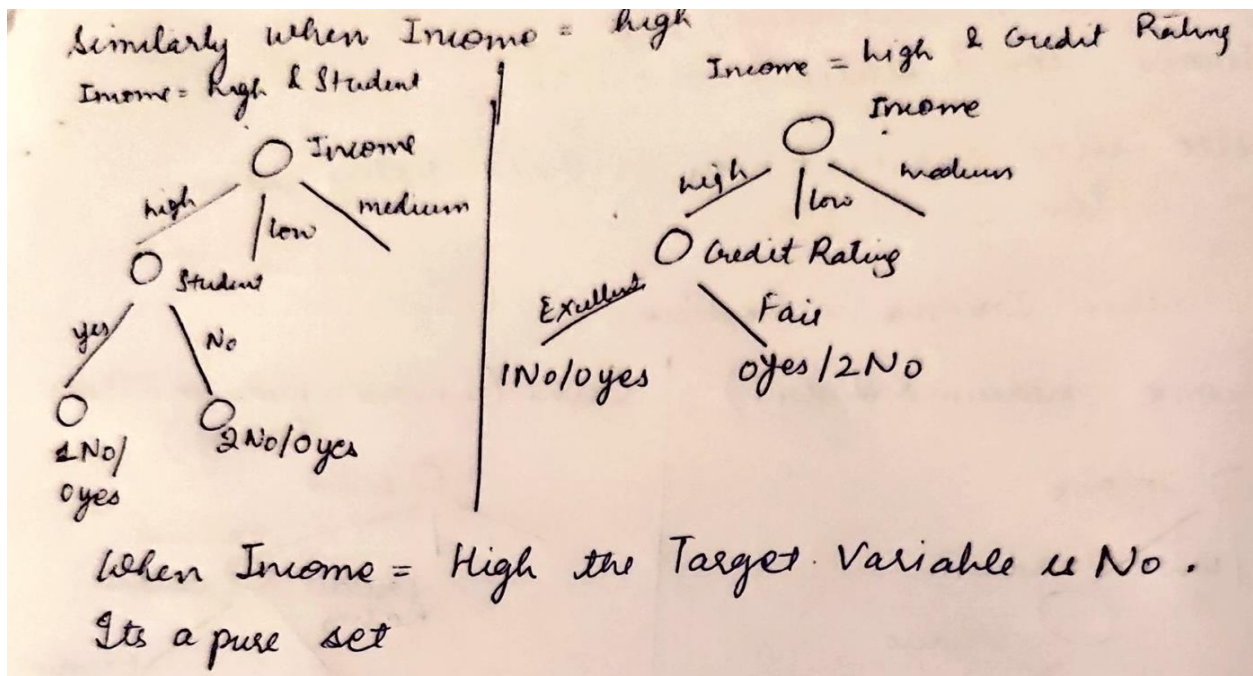 Similarly when Income = high
Income = high & Student
Income
high
low
medium
Student
yes
No
1No/
0yes
2No/0yes
Income = high & Credit Rating
Income
high
low
medium
Credit Rating
Excellent
Fair
1No/0yes
0yes/2No
When Income = High the Target Variable is No.
Its a pure set